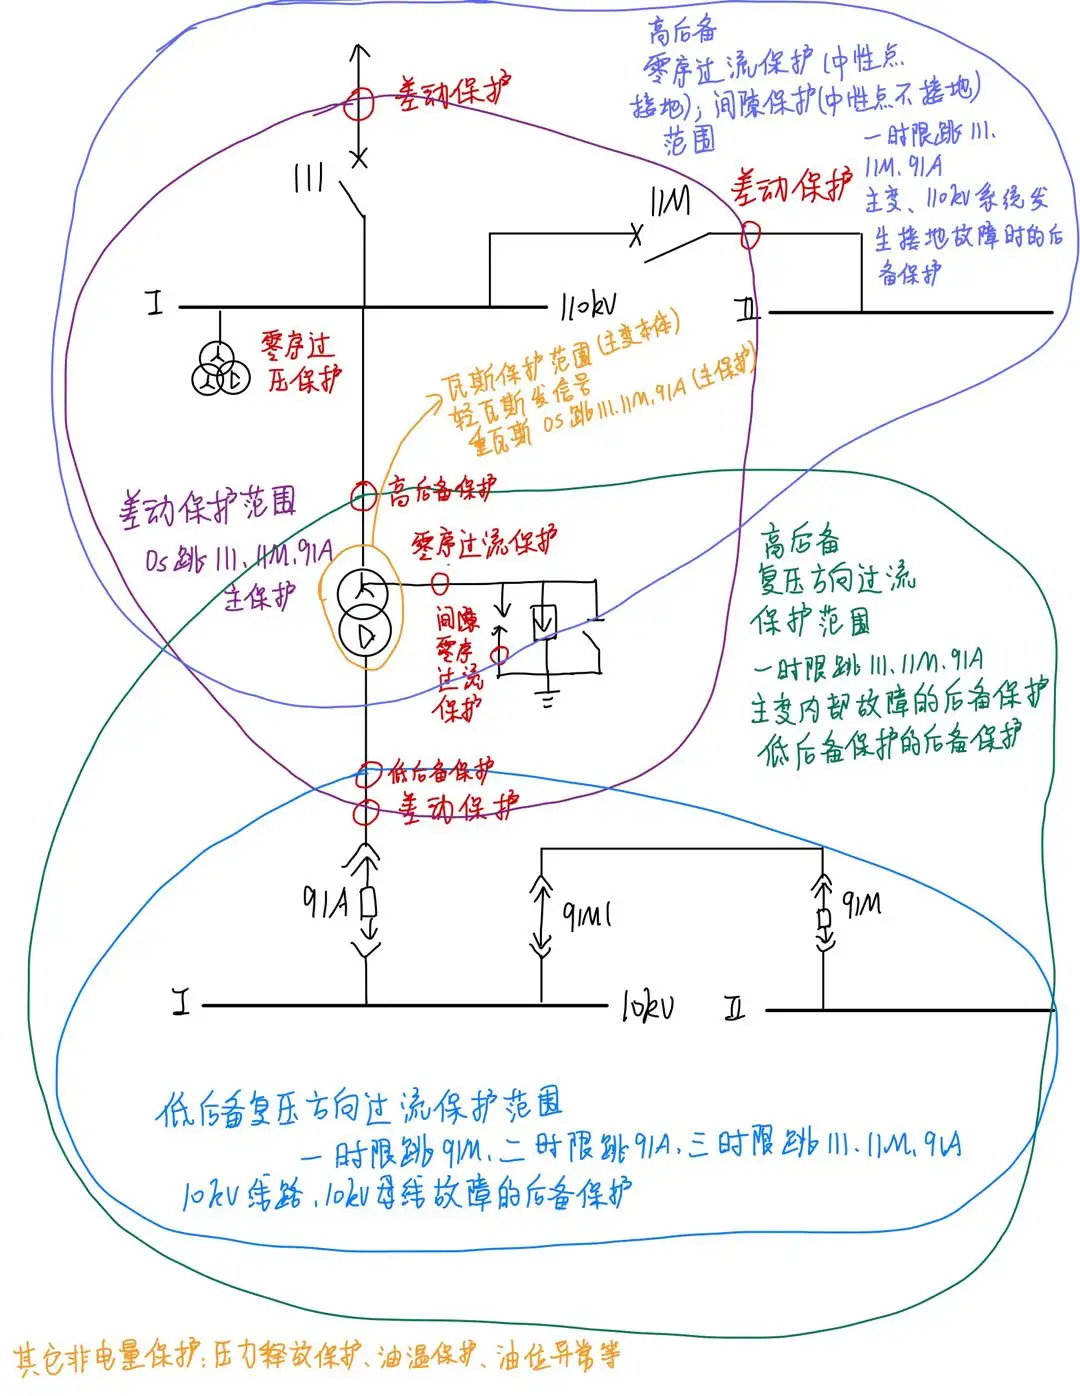 高后备
零序过流保护(中性点
接地);间隙保护(中性点不接地)
范围
一时限跳111.
11M.91A
主变、110kV系统发
生接地故障时的后
备保护
差动保护
111
11M
差动保护
I
110kV
II
零序过
压保护
瓦斯保护范围(主变本体)
轻瓦斯发信号
重瓦斯 0s跳111.11M.91A(主保护)
高后备保护
差动保护范围
0s跳111、11M.91A
主保护
零序过流保护
间隙
零序
过流
保护
高后备
复压方向过流
保护范围
一时限跳111.11M.91A
主变内部故障的后备保护
低后备保护的后备保护
低后备保护
差动保护
91A
91M1
91M
I
10kV
II
低后备复压方向过流保护范围
一时限跳91M、二时限跳91A、三时限跳111.11M.91A
10kV线路、10kV母线故障的后备保护
其它非电量保护:压力释放保护、油温保护、油位异常等